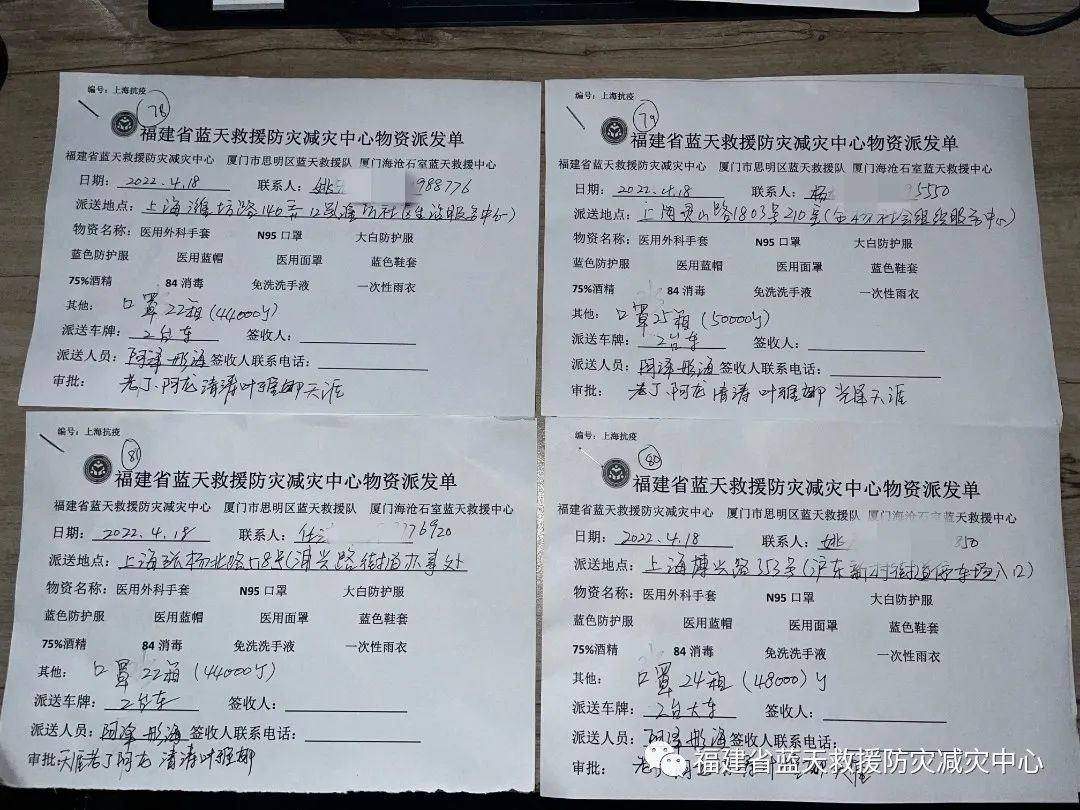 编号：上海抗疫
78
福建省蓝天救援防灾减灾中心物资派发单
福建省蓝天救援防灾减灾中心 厦门市思明区蓝天救援队 厦门海沧石室蓝天救援中心
日期：2022.4.18 联系人：姚 988776
派送地点：上海潍坊路140弄12号潍坊社区生活服务中心)
物资名称：医用外科手套 N95 口罩 大白防护服
蓝色防护服 医用蓝帽 医用面罩 蓝色鞋套
75%酒精 84 消毒 免洗洗手液 一次性雨衣
其他：口罩22箱(44000个)
派送车牌：2台车 签收人：
派送人员：阿泽 彤海 签收人联系电话：
审批：老丁.阿龙 清涛 叶 天涯
编号：上海抗疫
79
福建省蓝天救援防灾减灾中心物资派发单
福建省蓝天救援防灾减灾中心 厦门市思明区蓝天救援队 厦门海沧石室蓝天救援中心
日期：2022.4.18 联系人：杨 5550
派送地点：上海灵山路1803号210室(金杨社会组织服务中心)
物资名称：医用外科手套 N95 口罩 大白防护服
蓝色防护服 医用蓝帽 医用面罩 蓝色鞋套
75%酒精 84 消毒 免洗洗手液 一次性雨衣
其他：口罩25箱(50000个)
派送车牌：2台车 签收人：
派送人员：阿泽 彤海 签收人联系电话：
审批：老丁.阿龙 清涛 叶 天涯
编号：上海抗疫
81
福建省蓝天救援防灾减灾中心物资派发单
福建省蓝天救援防灾减灾中心 厦门市思明区蓝天救援队 厦门海沧石室蓝天救援中心
日期：2022.4.18 联系人：任 76920
派送地点：上海 杨北路58号(浦兴路街道办事处
物资名称：医用外科手套 N95 口罩 大白防护服
蓝色防护服 医用蓝帽 医用面罩 蓝色鞋套
75%酒精 84 消毒 免洗洗手液 一次性雨衣
其他：口罩22箱(44000个)
派送车牌：2台车 签收人：
派送人员：阿泽 彤海 签收人联系电话：
审批：天涯 老丁 阿龙 清涛 叶
编号：上海抗疫
80
福建省蓝天救援防灾减灾中心物资派发单
福建省蓝天救援防灾减灾中心 厦门市思明区蓝天救援队 厦门海沧石室蓝天救援中心
日期：2022.4.18 联系人：姚 850
派送地点：上海博兴路353号(沪东新村街道停车场入口)
物资名称：医用外科手套 N95 口罩 大白防护服
蓝色防护服 医用蓝帽 医用面罩 蓝色鞋套
75%酒精 84 消毒 免洗洗手液 一次性雨衣
其他：口罩24箱(48000)个
派送车牌：2台大车 签收人：
派送人员：阿泽 彤海 签收人联系电话：
审批：老 天涯
福建省蓝天救援防灾减灾中心